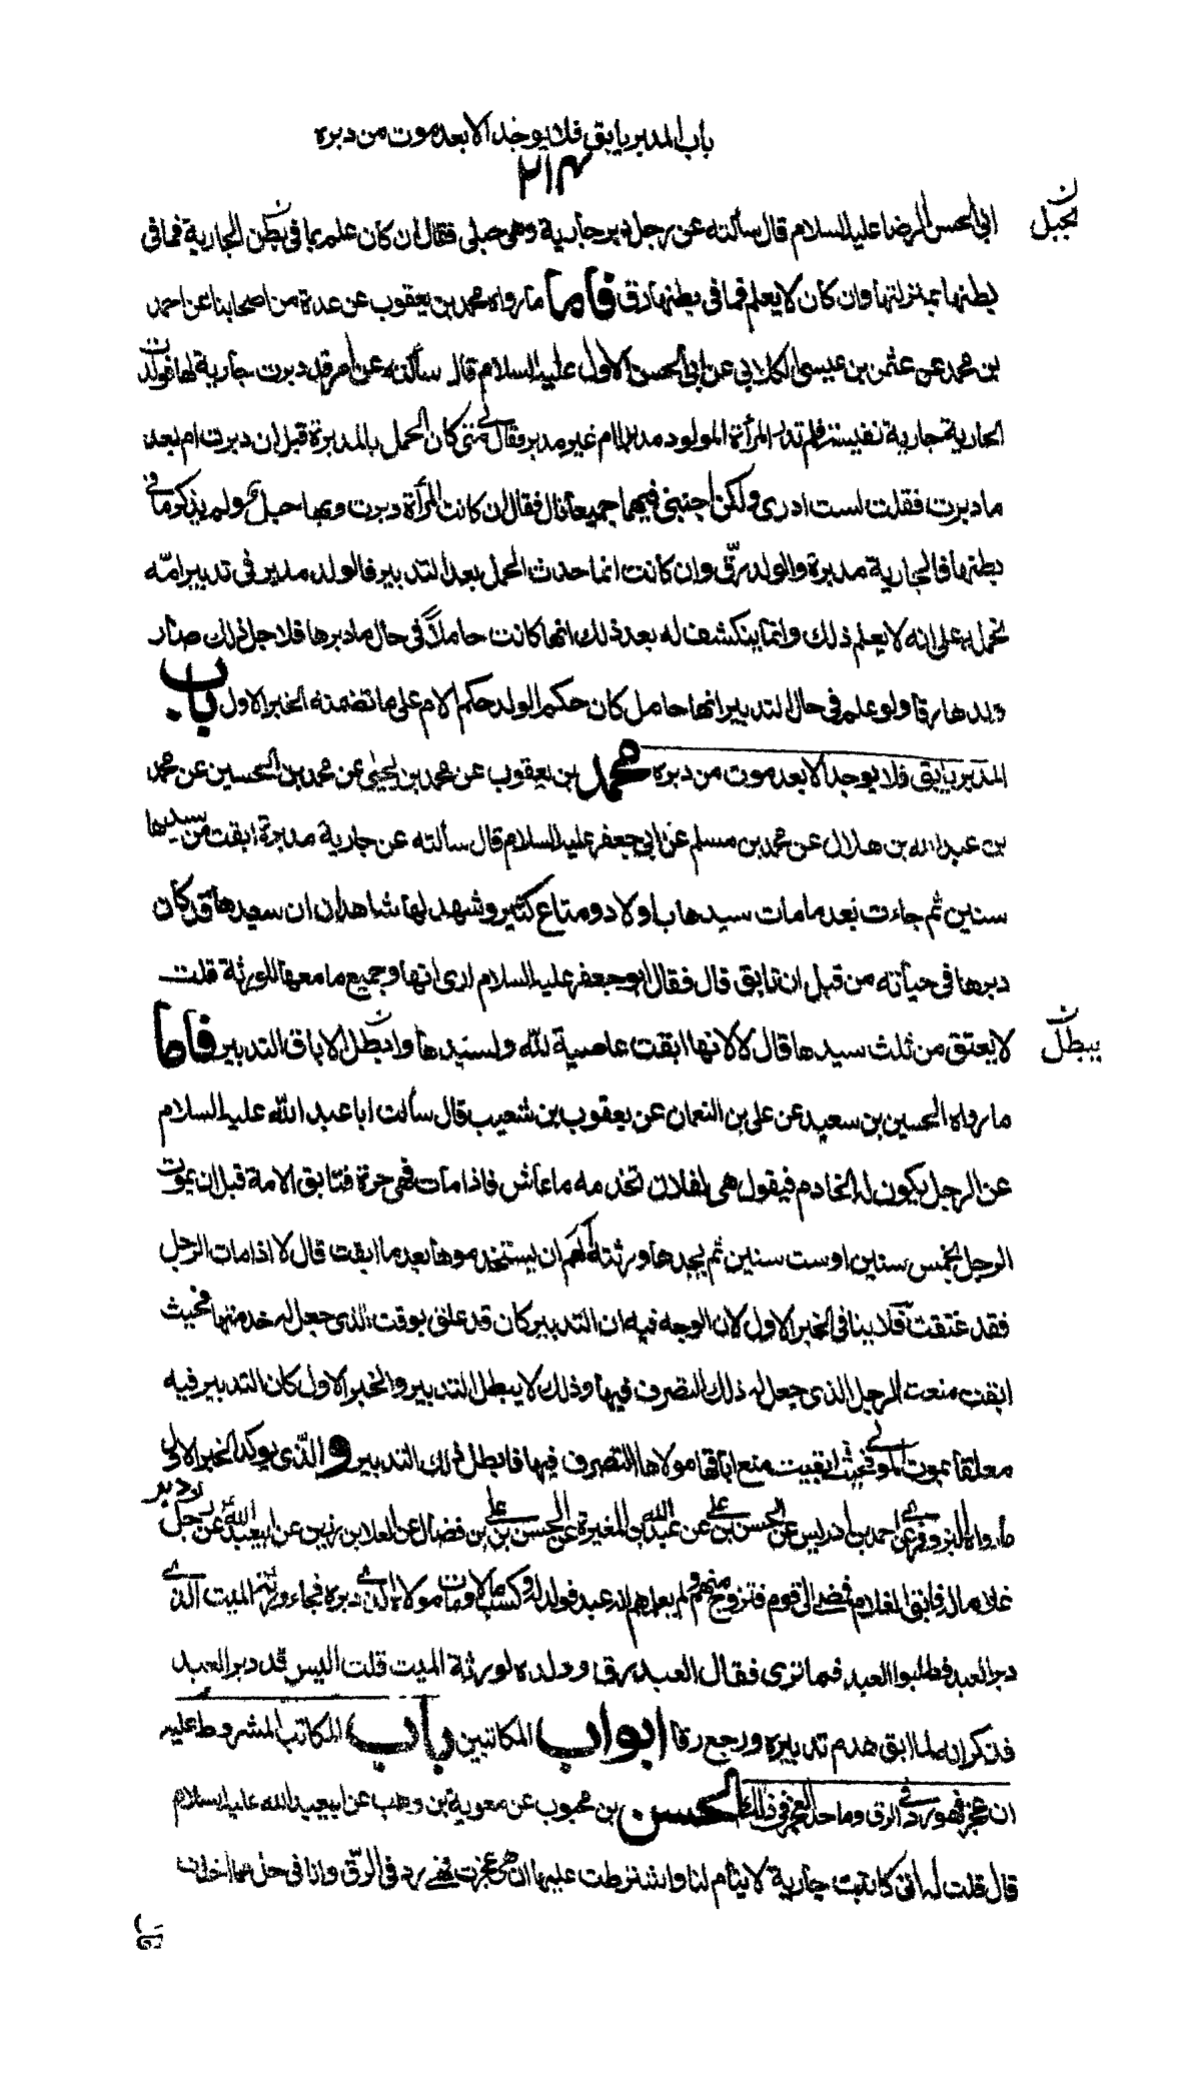 باب المدبر يابق فلا يوجد الا بعد موت من دبره
٢١٣
ابى الحسن الرضا عليه السلام قال سألته عن رجل دبر جارية وهى حبلى فقال ان كان علم بما فى بطن الجارية فما فى
الحبل
بطنها بمنزلتها وان كان لا يعلم فما فى بطنها رق فاما ما رواه محمد بن يعقوب عن عدة من اصحابنا عن احمد
بن محمد عن عثمن بن عيسى الكلابى عن ابى الحسن الاول عليه السلام قال سألته عن امرأة دبرت جارية لها فولدت
الجارية جارية نفيسة فلم تدر المرأة المولود مدبرا ام غير مدبر فقال لى متى كان الحمل بالمدبرة قبل ان دبرت ام بعد
ما دبرت فقلت لست ادرى ولكن اجبنى فيهما جميعا قال فقال ان كانت المرأة دبرت وبها حبل ولم يذكر ما فى
بطنها فالجارية مدبرة والولد رقّ وان كانت انما حدث الحمل بعد التدبير فالولد مدبر فى تدبير امّه
نحمله على انه لا يعلم ذلك وانما ينكشف له بعد ذلك انها كانت حاملاً فى حال ما دبرها فلاجل ذلك صار
ولدها رقا ولو علم فى حال التدبير انها حامل كان حكم الولد حكم الام على ما تضمنه الخبر الاول باب
المدبر يابق فلا يوجد الا بعد موت من دبره محمد بن يعقوب عن محمد بن يحيى عن محمد بن الحسين عن محمد
بن عبد الله بن هلال عن محمد بن مسلم عن ابى جعفر عليه السلام قال سألته عن جارية مدبرة ابقت من سيدها
سنين ثم جاءت بعد ما مات سيدها باولاد ومتاع كثير وشهد لها شاهدان ان سيدها قد كان
دبرها فى حياته من قبل ان تابق قال فقال ابو جعفر عليه السلام ارى انها وجميع ما معها للورثة قلت
لا يعتق من ثلث سيدها قال لا لانها ابقت عاصية لله ولسيدها وابطل الاباق التدبير فاما
يبطل
ما رواه الحسين بن سعيد عن على بن النعمان عن يعقوب بن شعيب قال سألت ابا عبد الله عليه السلام
عن الرجل يكون له الخادم فيقول هى لفلان تخدمه ما عاش فاذا مات فهى حرة فتابق الامة قبل ان يموت
الرجل بخمس سنين او ست سنين ثم يجدها ورثته الهم ان يستخدموها بعد ما ابقت قال لا اذا مات الرجل
فقد عتقت فلا ينافى الخبر الاول لان الوجه فيه ان التدبير كان قد علق بوقت الذى جعل له خدمتها فحيث
ابقت منعت الرجل الذى جعل له ذلك التصرف فيها وذلك لا يبطل التدبير والخبر الاول كان التدبير فيه
معلقا بموت المولى فحيث ابقيت منع اباقها مولاها التصرف فيها فابطل ذلك التدبير والّذى يوكد الخبر الاول
دبر
ما رواه البزوفرى عن احمد بن ادريس عن الحسن بن على عن عبد الله بن المغيرة عن الحسن بن على بن فضال عن العلا بن رزين عن ابى عبد الله عن رجل
غلاما له فابق الغلام فمضى الى قوم فتزوج منهم ولم يعلمهم انه عبد فولد له وكسب مالا ومات مولاه الذى دبره فجاء ورثة الميت الذى
دبر العبد فطلبوا العبد فما ترى فقال العبد رق وولده لورثة الميت قلت اليس قد دبر العبد
فذكر انه لما ابق هدم تدبيره ورجع رقا ابواب المكاتبين باب المكاتب المشروط عليه
ان عجز فهو رد فى الرق وما حد العجز فى ذلك الحسن بن محبوب عن معوية بن وهب عن ابيعبد الله عليه السلام
قال قلت له انى كاتبت جارية لايتام لنا واشترطت عليها ان هى عجزت فهى رد فى الرّق وانا فى حل مما اخذت